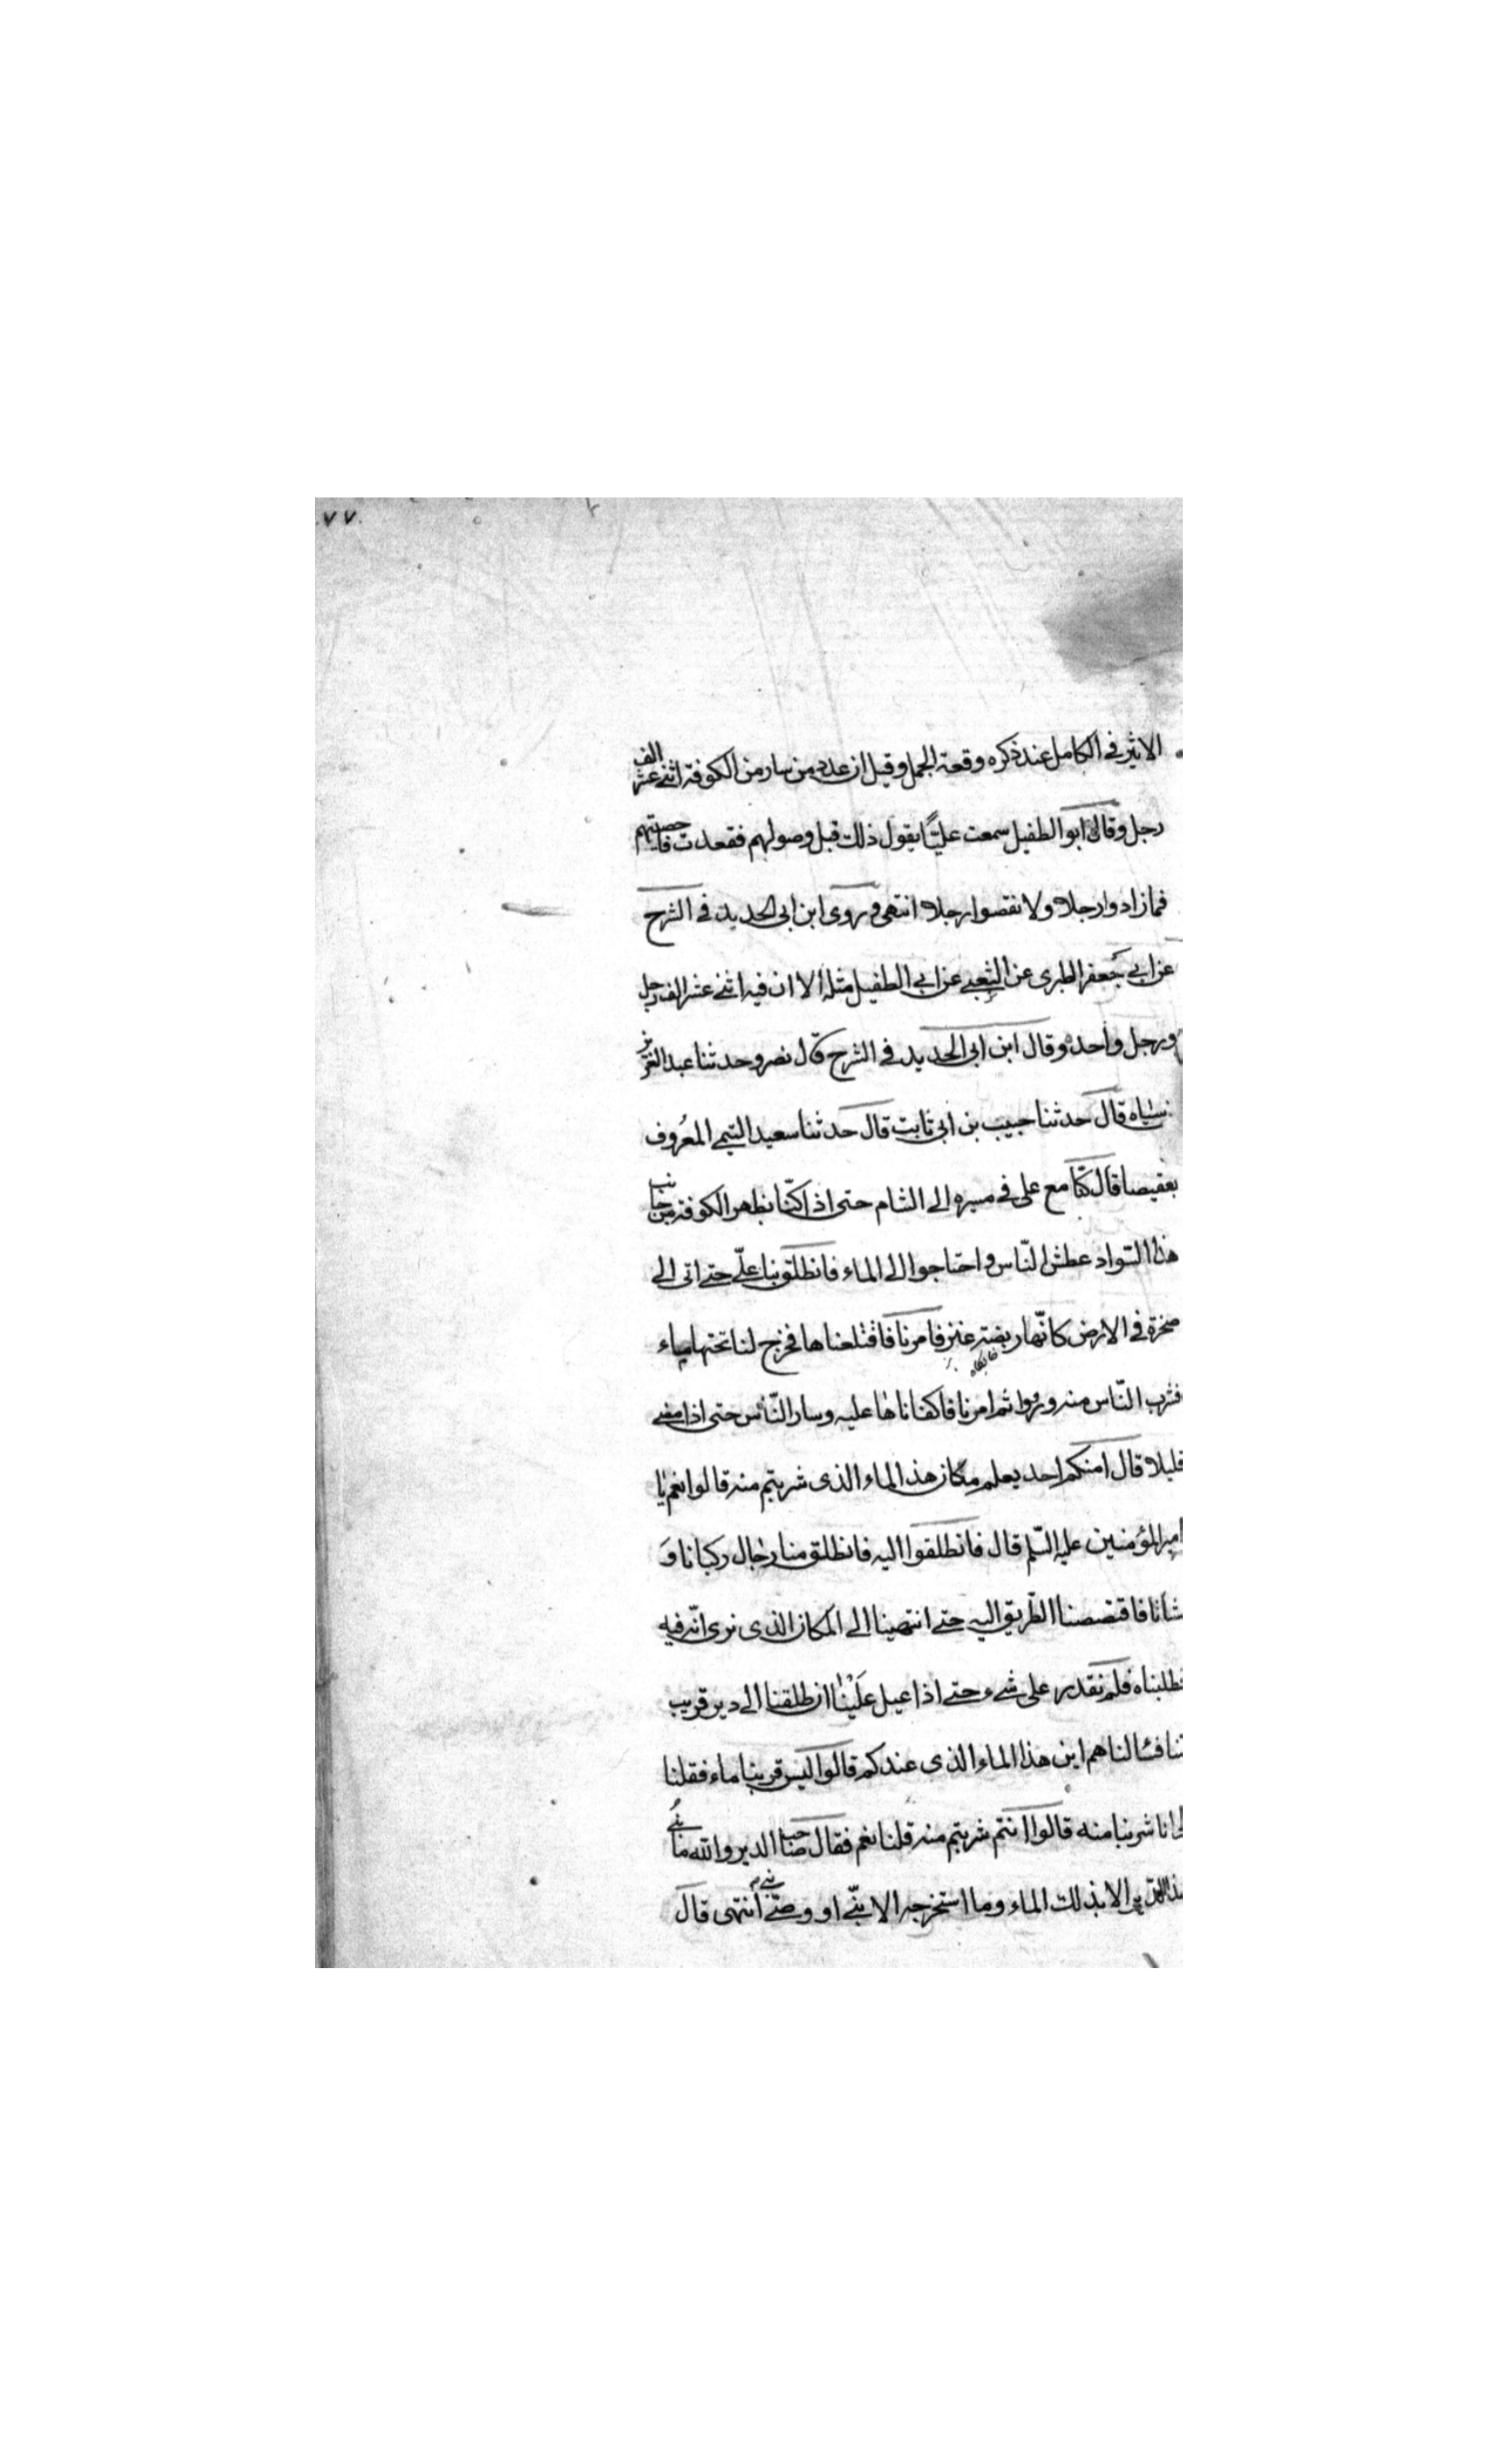 ٧٧
الاثير في الكامل عند ذكره وقعة الجمل وقيل ان عدد من سار من الكوفة اثنى عشر الف
رجل وقال ابو الطفيل سمعت عليّاً يقول ذلك قبل وصولهم فقعدت فاحصيتهم
فما زادوا رجلا ولا نقصوا رجلا انتهى وروى ابن ابى الحديد في الشرح
عن ابي جعفر الطبرى عن الشعبي عن ابي الطفيل مثله الا ان فيه اثنى عشر الف رجل
ورجل واحد وقال ابن ابى الحديد في الشرح قال نصر وحدثنا عبد العزيز
سياه قال حدثنا حبيب بن ابى ثابت قال حدثنا سعيد التيمي المعروف
بعقيصا قال كنّا مع على في مسيره الى الشام حتى اذا كنّا بظهر الكوفة من جانب
هذا السواد عطش النّاس واحتاجوا الى الماء فانطلق بنا علىّ حتى اتى الى
صخرة في الارض كانّها ربضة عنز فامرنا فاقتلعناها فخرج لنا تحتها ماء
فشرب النّاس منه ورووا ثم امرنا فاكفاناها عليه وسار النّاس حتى اذا مضى
قليلا قال امنكم احد يعلم مكان هذا الماء الذى شربتم منه قالوا نعم يا
امير المؤمنين عليه السّلم قال فانطلقوا اليه فانطلق منا رجال ركبانا و
شاتا فاقتصصنا الطّريق اليه حتى انتهينا الى المكان الذى نرى انّه فيه
فطلبناه فلم نقدر على شىء حتى اذا عيل علينا انطلقنا الى دير قريب
منا فسالناهم اين هذا الماء الذى عندكم قالوا اليس قربنا ماء فقلنا
انا شربنا منه قالوا انتم شربتم منه قلنا نعم فقال صاحب الدير والله ما بُني
هذا الدير الا بذلك الماء وما استخرجه الا نبىّ او وصىّ نبى انتهى قال